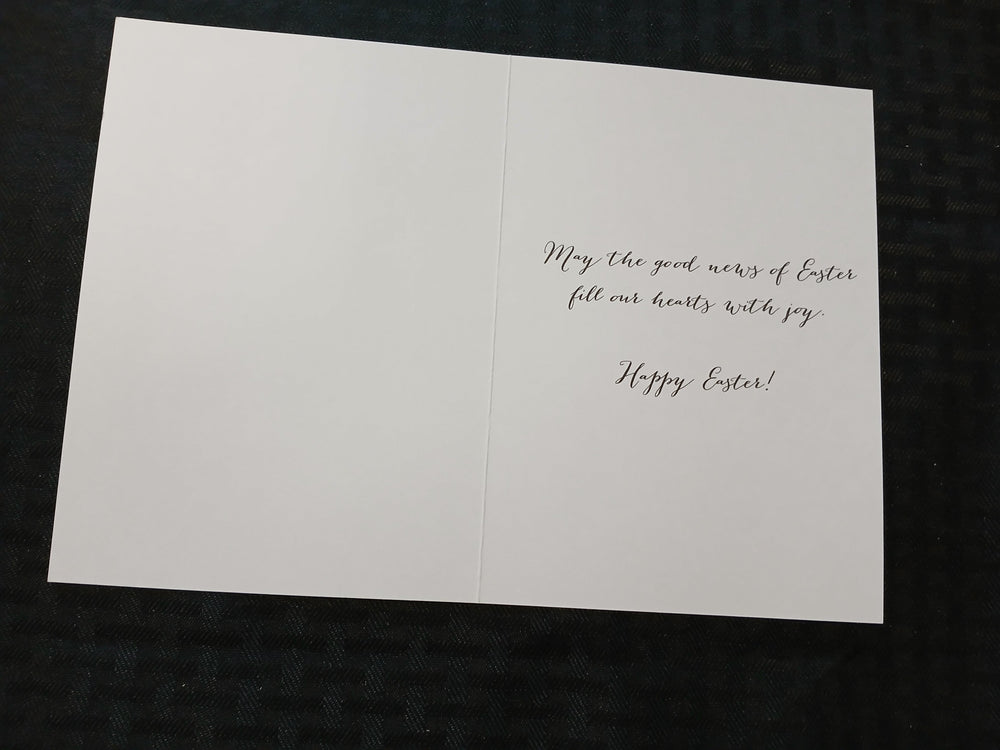 May the good news of Easter
fill our hearts with joy.
Happy Easter!